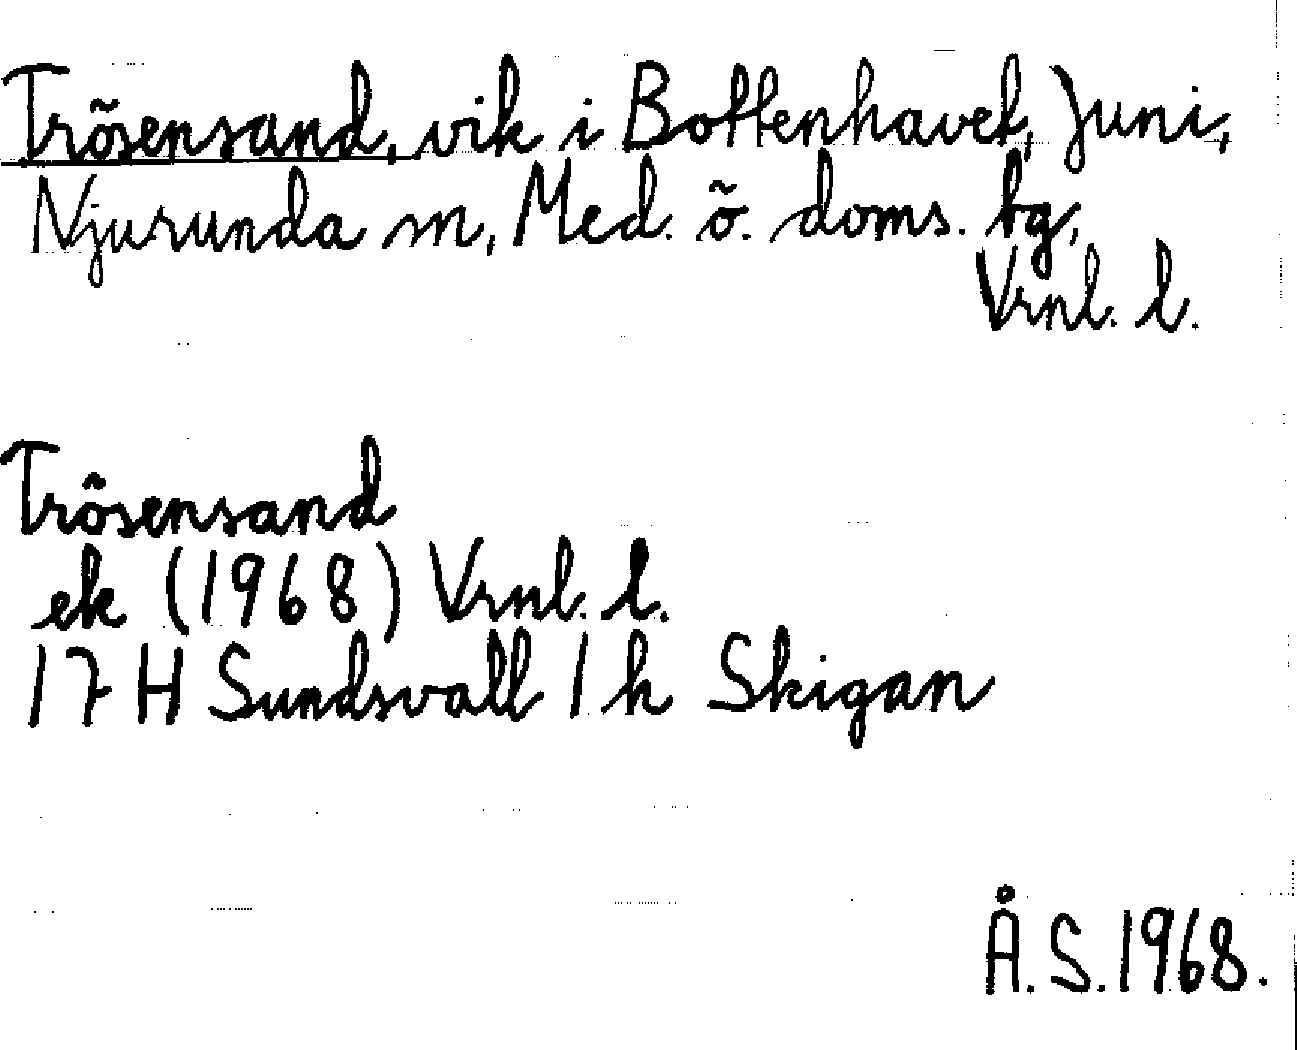 Trösensand, vik i Bottenhavet, Juni,
Njurunda sn, Med. ö. doms. tg,
Vrnl. l.
Trösensand
ek (1968) Vrnl. l.
17 H Sundsvall 1 h Skigan
Å. S. 1968.